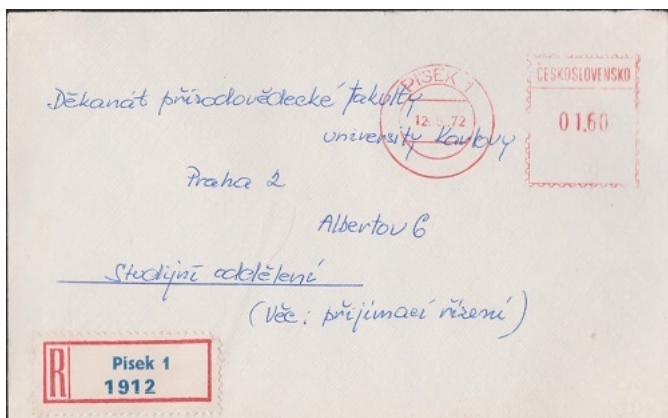 PÍSEK 1
ČESKOSLOVENSKO
12.5.72
01.60
Děkanát přírodovědecké fakulty
university Karlovy
Praha 2
Albertov 6
Studijní oddělení
(Věc: přijímací řízení)
R
Písek 1
1912